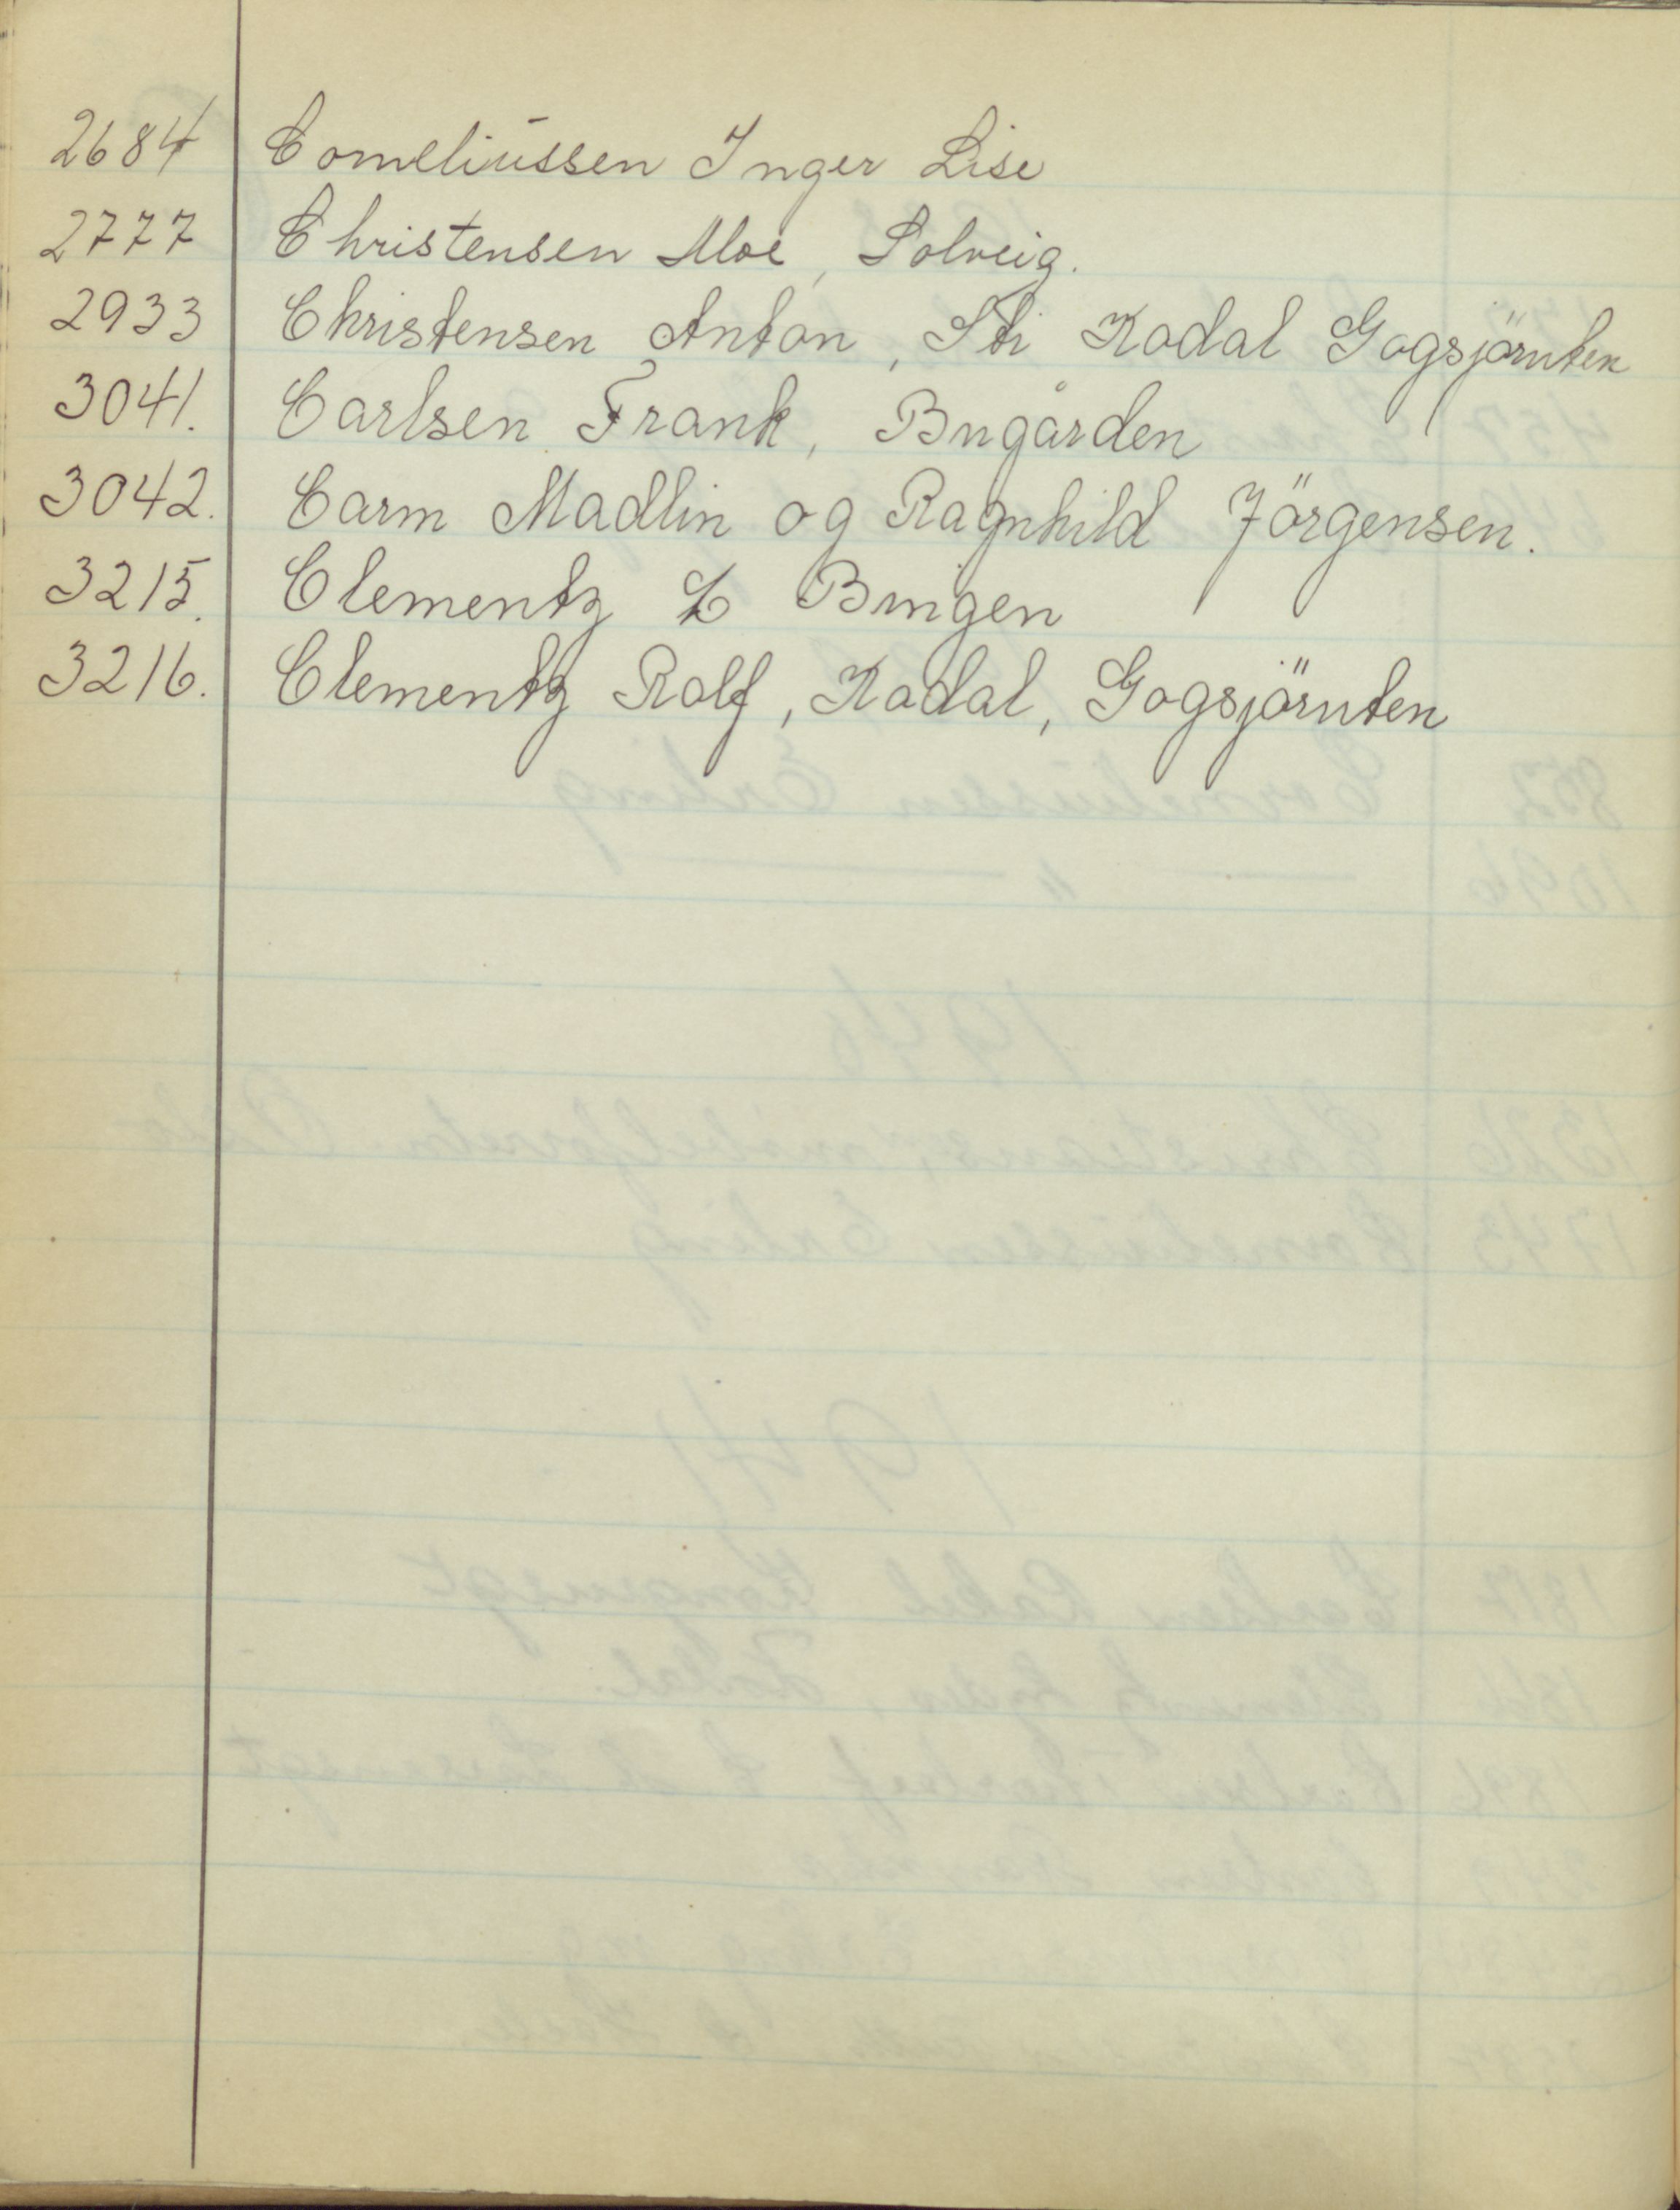 2684 Corneliussen Inger Lise
2777 Christensen Moe, Solveig.
2933 Christensen Anton, Sti Kodal Gogsjørnten
3041. Carlsen Frank, Bugården
3042. Carm Madlin og Ragnhild Jörgensen.
3215. Clementz C Bingen
3216. Clementz Rolf, Kodal, Gogsjörnten